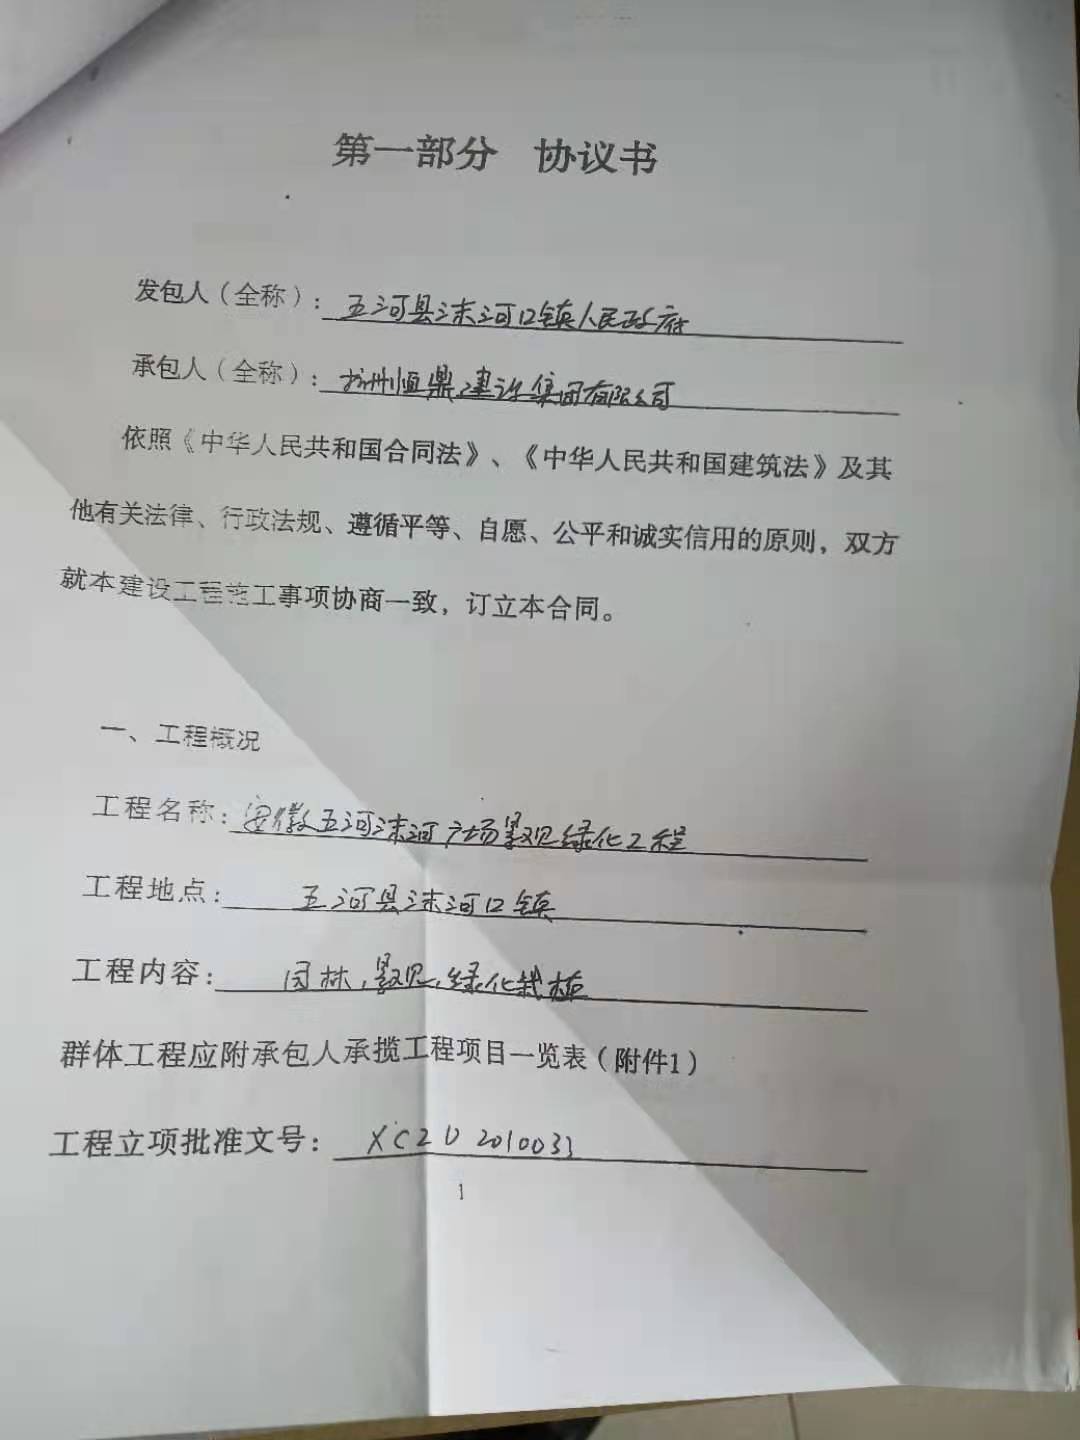 第一部分 协议书
发包人（全称）：五河县沫河口镇人民政府
承包人（全称）：杭州恒鼎建设集团有限公司
依照《中华人民共和国合同法》、《中华人民共和国建筑法》及其
他有关法律、行政法规、遵循平等、自愿、公平和诚实信用的原则，双方
就本建设工程施工事项协商一致，订立本合同。
一、工程概况
工程名称：安徽五河沫河广场景观绿化工程
工程地点：五河县沫河口镇
工程内容：园林，景观，绿化栽植
群体工程应附承包人承揽工程项目一览表（附件1）
工程立项批准文号：XCZU2010033
1